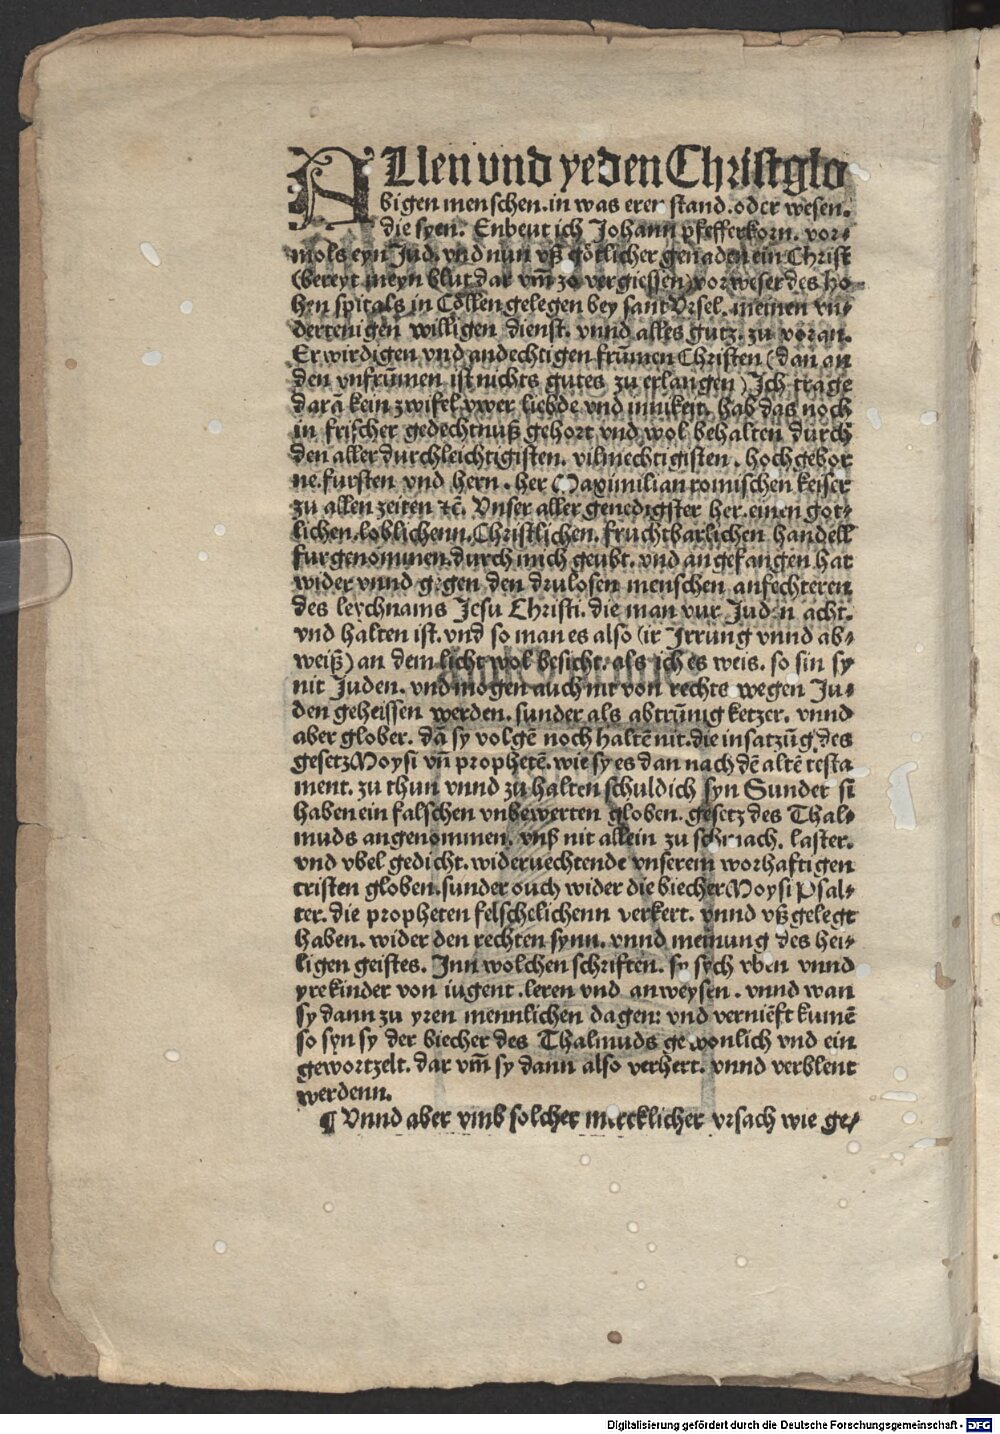 ALlen vnd yeden Christglo
bigen menschen.in was erer stand.oder wesen.
die syen. Enbeut ich Johann pfefferkorn. vor⸗
mols eyn Jud. vnd nun vß götlicher genaden ein Christ
(bereyt meyn blut dar vm̃ zo vergiessen) vorweser des ho⸗
hen spitals in Cöllen gelegen bey sant Vrsel. meinen vn⸗
dertenigen willigen dienst. vnnd alles gutz. zu voran.
Er wirdigen vnd andechtigen frūmen Christen (dan an
den vnfrūmen ist nichts gutes zu erlangen) Jch trage
darā kein zwifel vwer liebde vnd innikeit. hab das noch
in frischer gedechtnuß gehort vnd wol behalten durch
den aller durchleichtigisten. vilmechtigisten. hochgebor
ne.fursten vnd hern. her Maximilian romischen keiser
zu allen zeiten ⁊c̄. Vnser aller genedigster her.einen got⸗
lichen.loblichenn.Christlichen. fruchtbarlichen handell
furgenommen.durch mich geubt. vnd angefangen hat
wider vnnd gegen den drulosen menschen anfechteren
des leychnams Jesu Christi. die man vur Juden acht.
vnd halten ist. vnd so man es also (ir Jrrung vnnd ab⸗
weiß) an dem licht wol besicht. als ich es weis. so sin sy
nit Juden. vnd mogen auch nit von rechts wegen Ju⸗
den geheissen werden. sunder als abtrūnig ketzer. vnnd
aber glober. dā sy volgē noch haltē nit.die insatzūg des
gesetz Moysi vn̄ prophetē. wie sy es dan nach dē altē testa
ment. zu thun vnnd zu halten schuldich syn Sunder si
haben ein falschen vnbewerten globen. gesetz des Thal⸗
muds angenommen. vnß nit allein zu schmach. laster.
vnd vbel gedicht. wideruechtende vnserem worhaftigen
cristen globen.sunder ouch wider die biecher Moysi Psal⸗
ter. die propheten felschelichenn verkert. vnnd vßgelegt
haben. wider den rechten synn. vnnd meinung des hei⸗
ligen geistes. Jnn wolchen schriften. sy sych vben vnnd
yre kinder von iugent .leren vnd anweysen. vnnd wan
sy dann zu yren mennlichen dagen: vnd verniēft kumē
so syn sy der biecher des Thalmuds gewonlich vnd ein
gewortzelt. dar vm̃ sy dann also verhert. vnnd verblent
werdenn.
¶ Vnnd aber vmb solcher mercklicher vrsach wie ge⸗
Digitalisierung gefördert durch die Deutsche Forschungsgemeinschaft - DFG